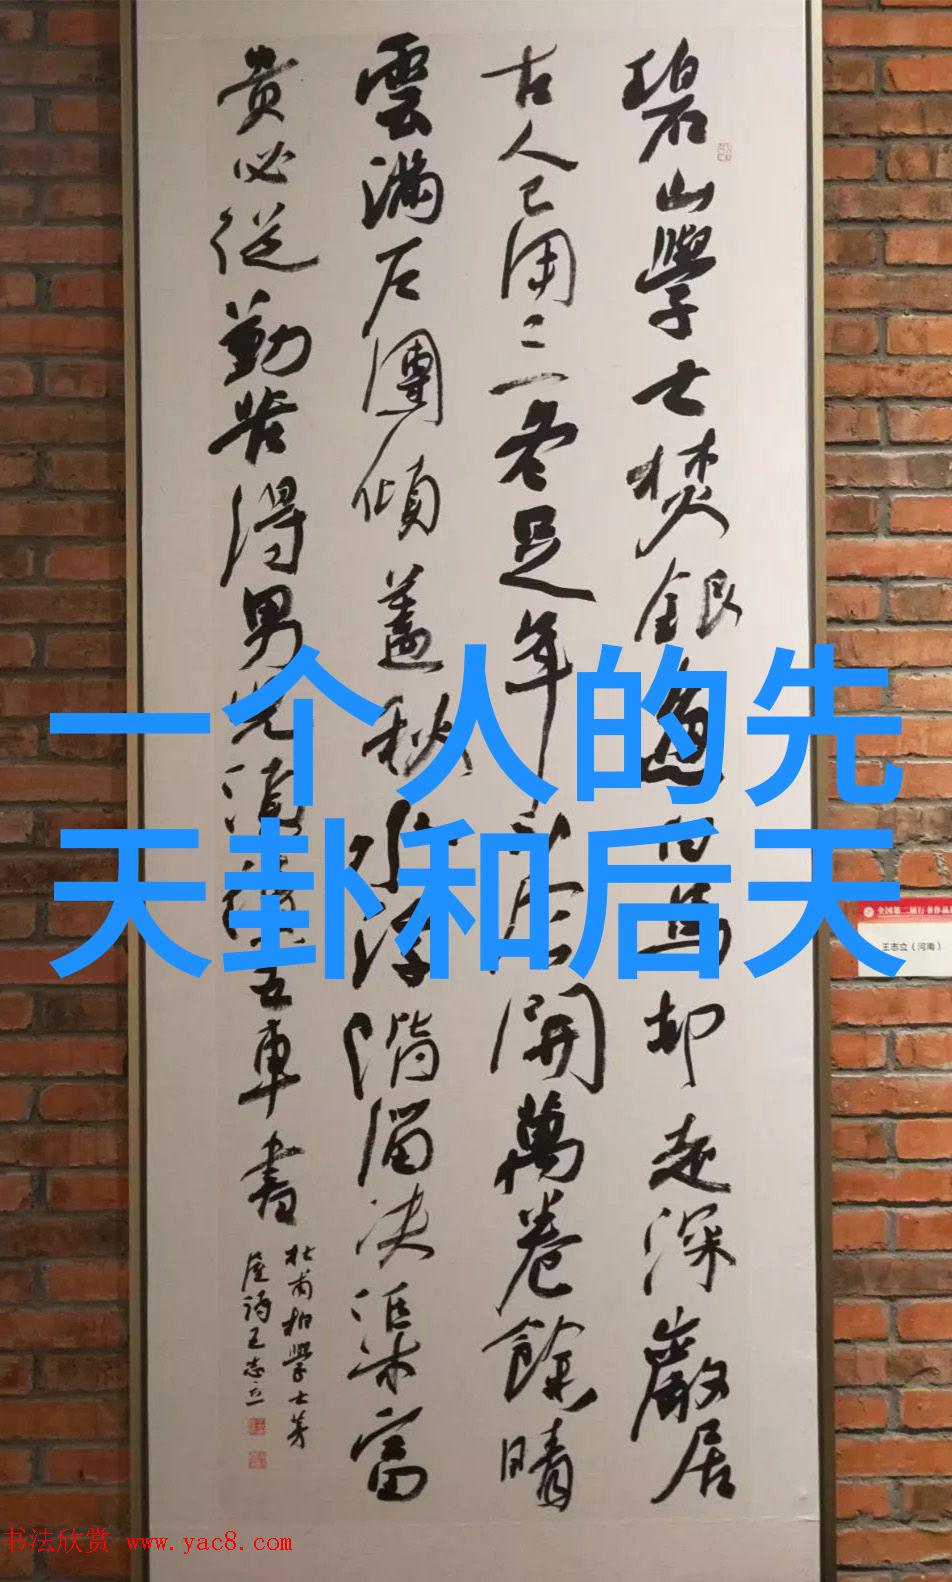 碧山學士焚銀魚白馬却走深巖居
古人已用三冬足年少今開萬卷餘晴
雲滿戶團傾蓋秋水浮階溜决渠富
貴必從勤苦得男兒須讀五車書
杜甫柏學士茅
屋詩王志立
一个人的先
天卦和后天
全国第二届行书作品
王志立（河南）
书法欣赏 www.yac8.com